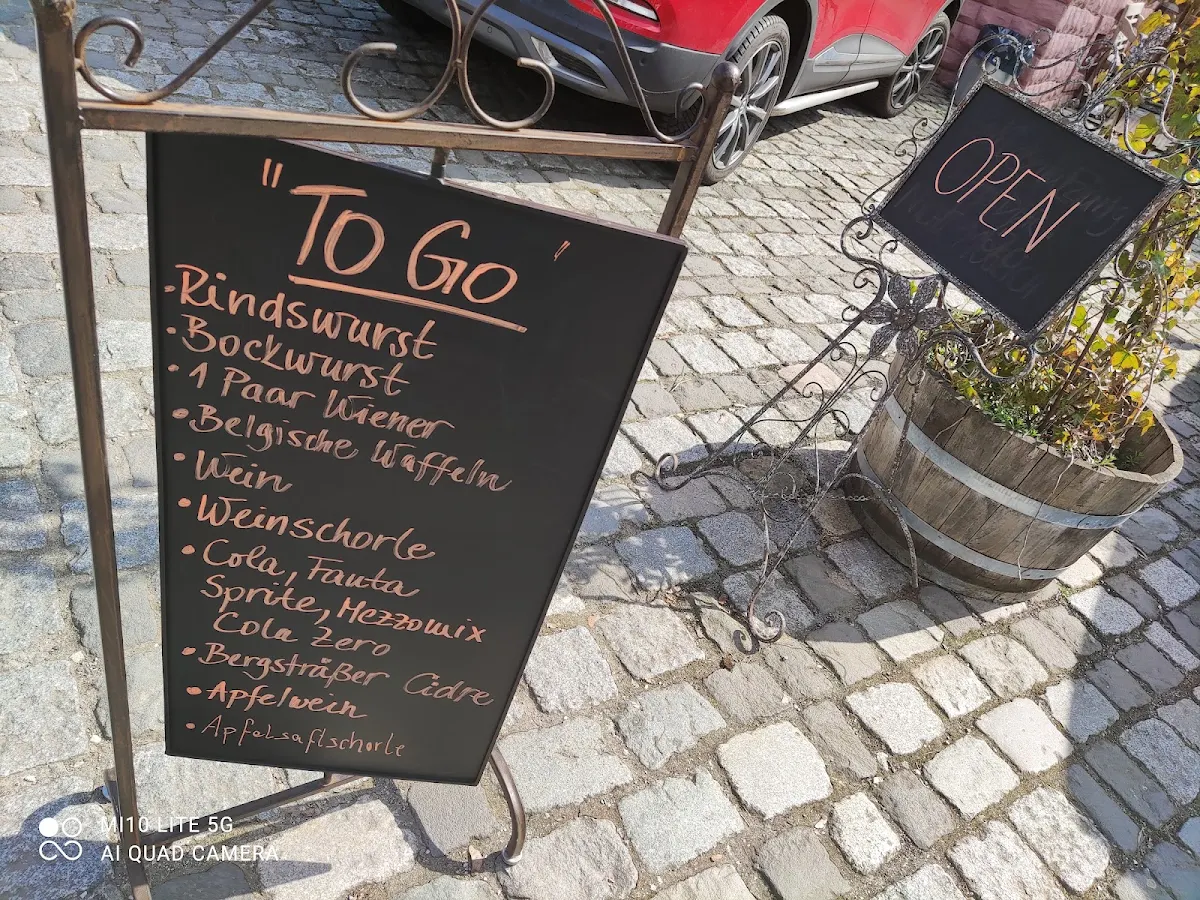 "TO GO"
• Rindswurst
• Bockwurst
• 1 Paar Wiener
• Belgische Waffeln
• Wein
• Weinschorle
• Cola, Fanta
Sprite, Mezzomix
Cola Zero
• Bergsträßer Cidre
• Apfelwein
• Apfelsaftschorle
OPEN
MI10 LITE 5G
AI QUAD CAMERA